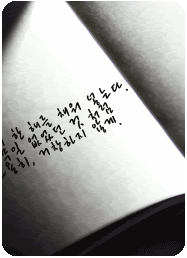 한 해를 채워 넣는다.
일 없었던 것처럼
히, 거창하지 않게.